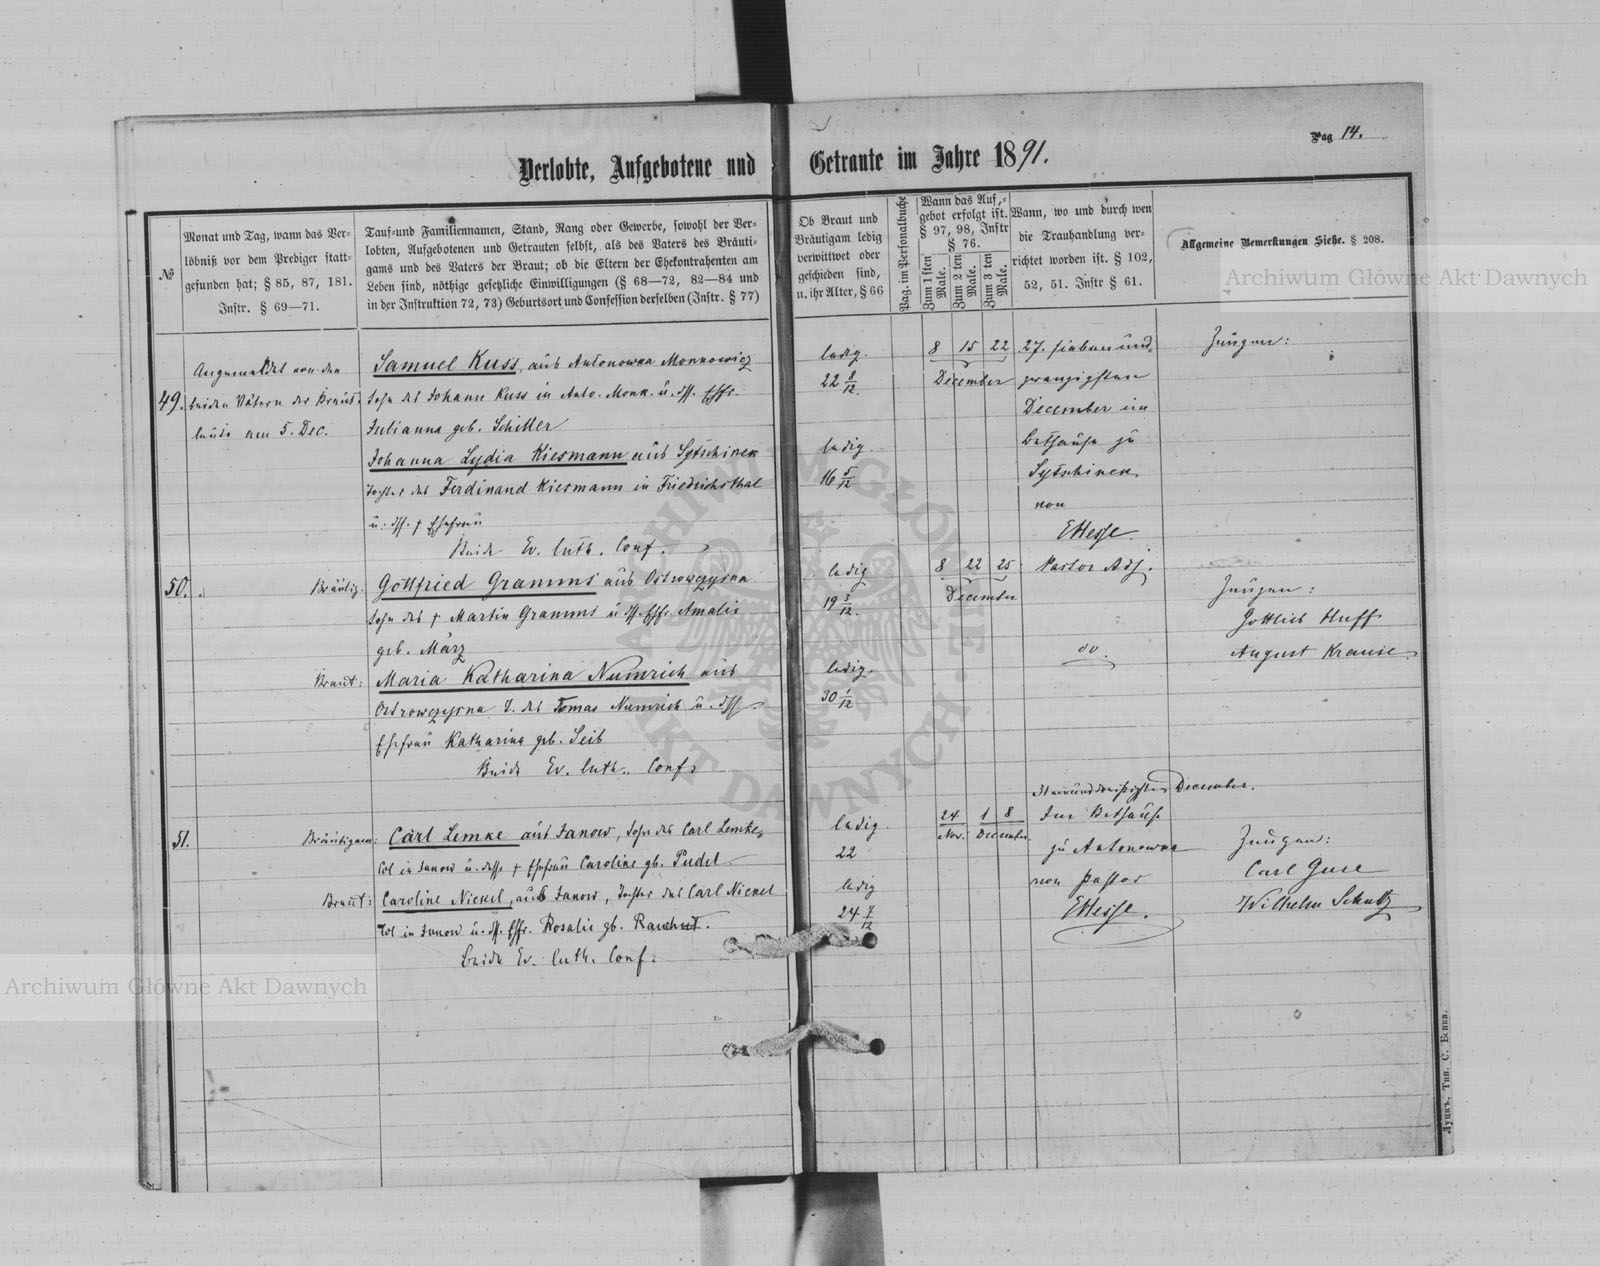 Pag 14.
Verlobte, Aufgebotene und Getraute im Jahre 1891.
№
Monat und Tag, wann das Ver-
löbniß vor dem Prediger statt-
gefunden hat; § 85, 87, 181.
Instr. § 69—71.
Tauf=und Familiennamen, Stand, Rang oder Gewerbe, sowohl der Ver-
lobten, Aufgebotenen und Getrauten selbst, als des Vaters des Bräuti-
gams und des Vaters der Braut; ob die Eltern der Ehekontrahenten am
Leben sind, nöthige gesetzliche Einwilligungen (§ 68—72, 82—84 und
in der Instruktion 72, 73) Geburtsort und Confession derselben (Instr. § 77)
Ob Braut und
Bräutigam ledig
verwittwet oder
geschieden sind,
u. ihr Alter, § 66
Pag. im Personalbuche
Wann das Auf,-
gebot erfolgt ist.
§ 97, 98, Instr
§ 76.
Zum 1 sten
Male.
Zum 2 ten
Male.
Zum 3 ten
Male.
Wann, wo und durch wen
die Trauhandlung ver-
richtet worden ist. § 102,
52, 51. Instr § 61.
Allgemeine Bemerkungen Siehe. § 208.
Archiwum Główne Akt Dawnych
49.
Angemeldet von den
beiden Vätern der Braut-
leute am 5. Dec.
Samuel Kuss, aus Antonowka Monkowicz
Sohn des Johann Kuss in Anto. Monk. u. dss. Ehfr.
Julianna geb. Schiller
Johanna Lydia Kiesmann aus Sytschinek
Tochter des Ferdinand Kiesmann in Friedrichsthal
u. dss. † Ehefrau
Beide Ev. luth. Conf.
ledig.
22 8/12
ledig.
16 5/12
8 15 22
December
27. siebenund-
zwanzigsten
December im
Bethause zu
Sytschinek
von
EHesse.
Pastor Adj.
Zeugen:
50.
Bräutig:
Gottfried Gramms aus Ostrowczysna
Sohn des † Martin Gramms u dss Ehfr. Amalie
geb. März
Braut:
Maria Katharina Numrich aus
Ostrowczysna T. des Tomas Numrich u. dss
Ehefrau Katharina geb. Seib
Beide Ev. luth. Conf.
ledig
19 3/12.
ledig.
30 1/12
8 22 25
December
do.
Zeugen:
Gottlieb Huff
August Krause
51.
Bräutigam:
Carl Lemke aus Janow, Sohn des Carl Lemke,
Col in Janow u. desse † Ehefrau Caroline gb. Pudel
Braut:
Caroline Nickel, aus Janow, Tochter des Carl Nickel
Col in Janow u. dss. Ehfr. Rosalie gb. Rauchut.
beide Ev. luth. Conf.
ledig.
22
ledig
24 7/12
24 1 8
Nov. December
31 einunddreißigsten December.
Im Bethause
zu Antonowka
von Pastor
EHesse.
Zeugen:
Carl Guse
Wilhelm Schultz
Archiwum Główne Akt Dawnych
ARCHIWUM GŁÓWNE AKT DAWNYCH
Луцкъ, Тип. С. Бенка.